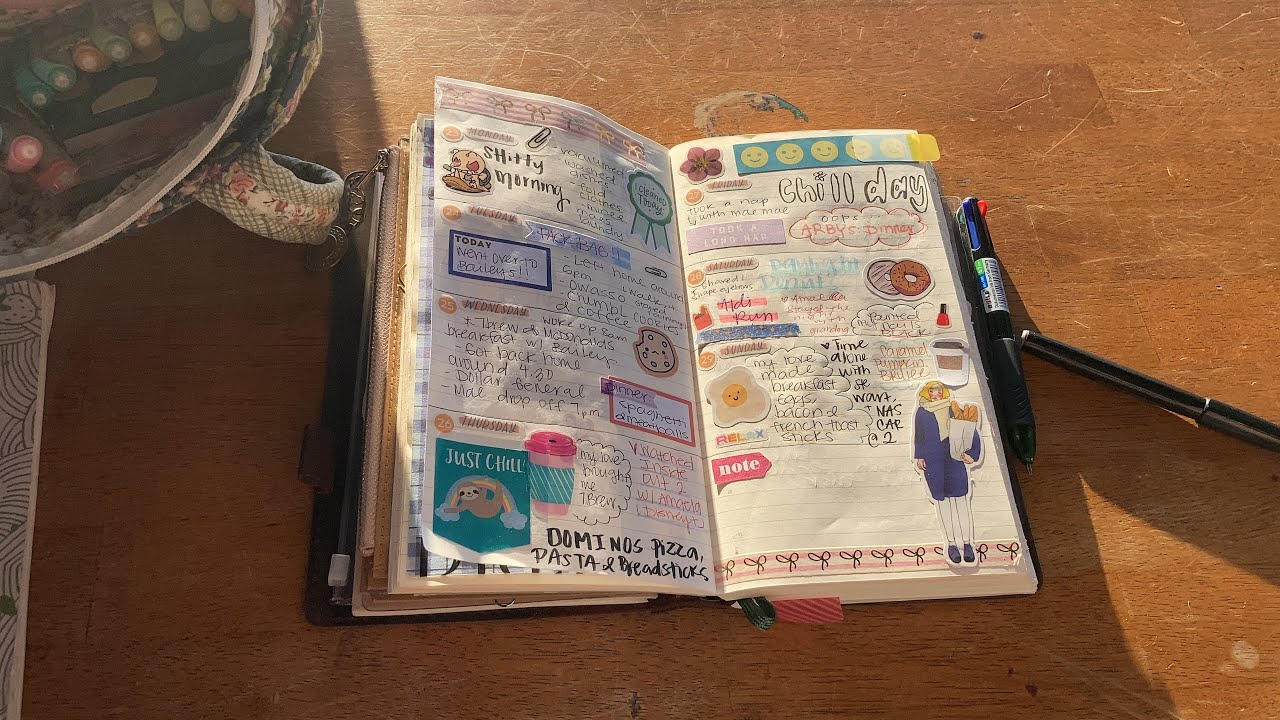 MONDAY
Shitty
morning
vacuumed
washed
dishes
fold
clothes
laundry
CLEANED
TODAY
TUESDAY
PACK BAG!
TODAY
Went over to
Bailey's!!
Left home around
6pm
owasso
crumbl cookies
coffee
25
WEDNESDAY
woke up 8am
Threw at McDonalds
breakfast w/ Bailey
Got back home
around 4:30
Dollar General
- Mae drop off 7pm
Dinner:
spaghetti
& meatballs
26
THURSDAY
JUST CHILL
my love
bought
me
7Brew
Watched
Inside
Out 2
w/ Angela
Disney+
DOMINOS Pizza,
PASTA & Breadsticks
27
FRIDAY
Chill day
TOOK A nap
w/ with mae mae
TOOK A
LONG NAP
OOPS
ARBYS Dinner
28
SATURDAY
Shaved!
Aldi
Run
Painted
my
29
SUNDAY
my love
made
breakfast
eggs,
bacon &
french toast
sticks
Time
alone
with
want.
NAS
CAR
@ 2
Caramel
Pumpkin
RELAX
note